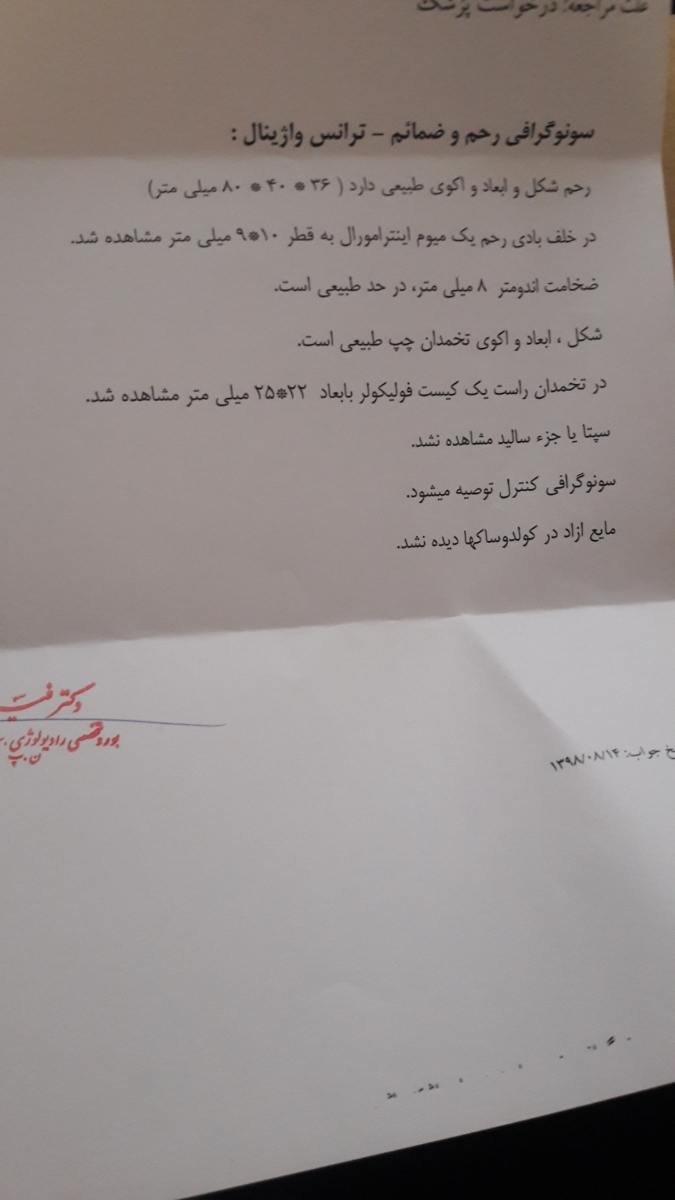 علت مراجعه: درخواست پزشک
سونوگرافی رحم و ضمائم - ترانس واژینال :
رحم شکل و ابعاد و اکوی طبیعی دارد ( ۳۶ * ۴۰ * ۸۰ میلی متر)
در خلف بادی رحم یک میوم اینترامورال به قطر ۱۰*۹ میلی متر مشاهده شد.
ضخامت اندومتر ۸ میلی متر، در حد طبیعی است.
شکل ، ابعاد و اکوی تخمدان چپ طبیعی است.
در تخمدان راست یک کیست فولیکولر بابعاد ۲۲*۲۵ میلی متر مشاهده شد.
سپتا یا جزء سالید مشاهده نشد.
سونوگرافی کنترل توصیه میشود.
مایع ازاد در کولدوساکها دیده نشد.
دکتر
بورد تخصصی رادیولوژی
ن.پ
جواب: ۱۳۹۸/۰۸/۱۴